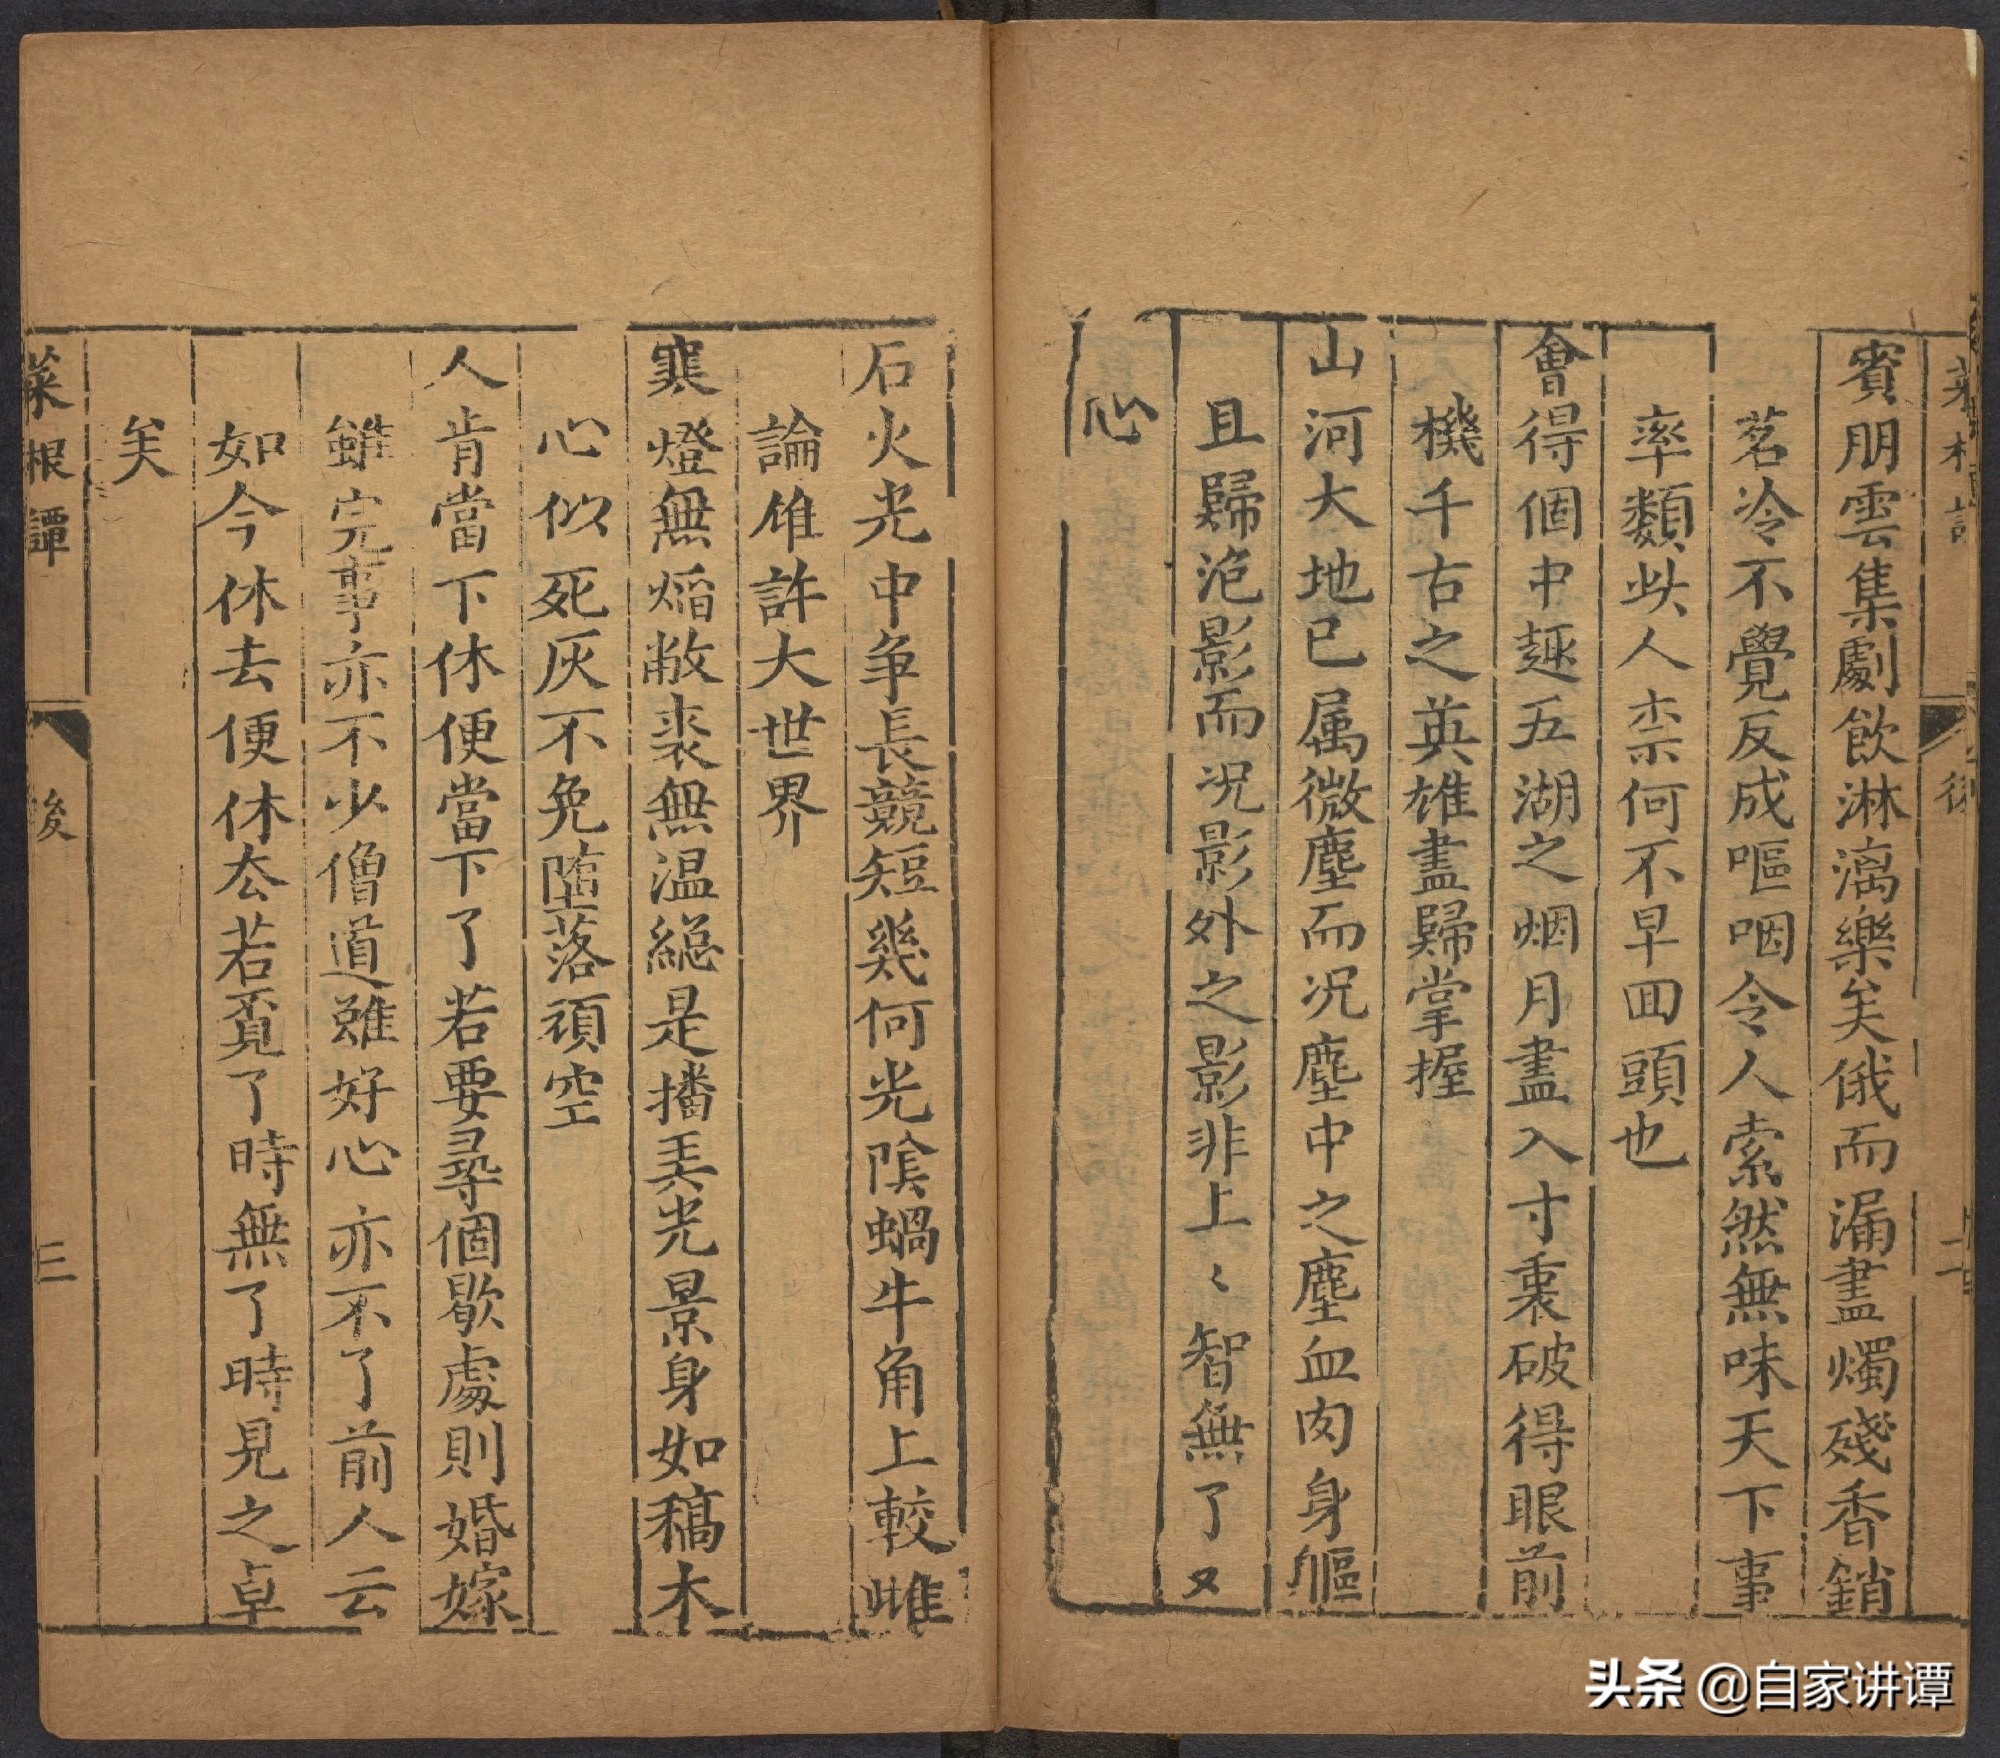 賓朋雲集劇飲淋漓樂矣俄而漏盡燭殘香銷
茗冷不覺反成嘔咽令人索然無味天下事
率類此人柰何不早囬頭也
會得個中趣五湖之烟月盡入寸裏破得眼前
機千古之英雄盡歸掌握
山河大地已属微塵而况塵中之塵血肉身軀
且歸泡影而况影外之影非上〻智無了又
心
石火光中争長競短幾何光陰蝸牛角上較雌
論雄許大世界
寒燈無焰敝裘無温緫是播弄光景身如稿木
心似死灰不免墮落頑空
人肯當下休便當下了若要尋個歇處則婚嫁
雖完事亦不少僧道雖好心亦不了前人云
如今休去便休去若覓了時無了時見之卓
矣
菜根譚
後
三
头条 @自家讲谭